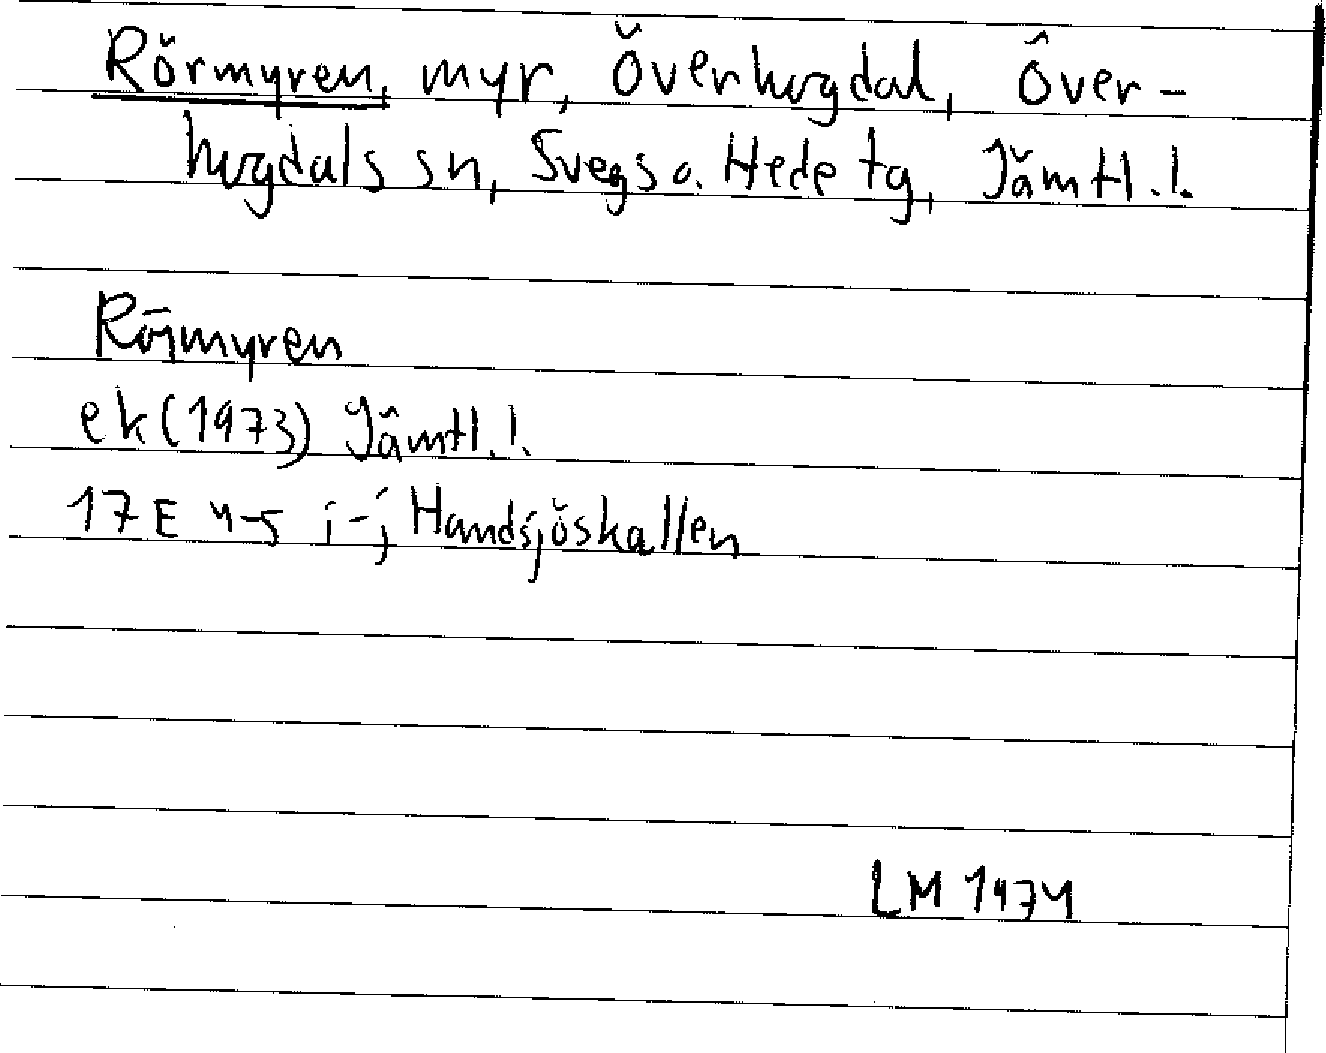 Rörmyren, myr, Överhogdal, Över-
hogdals sn, Svegs o. Hede tg, Jämtl.l.
Rörmyren
ek (1973) Jämtl.l.
17E 4-5 i-j Handsjöskallen
LM 1974